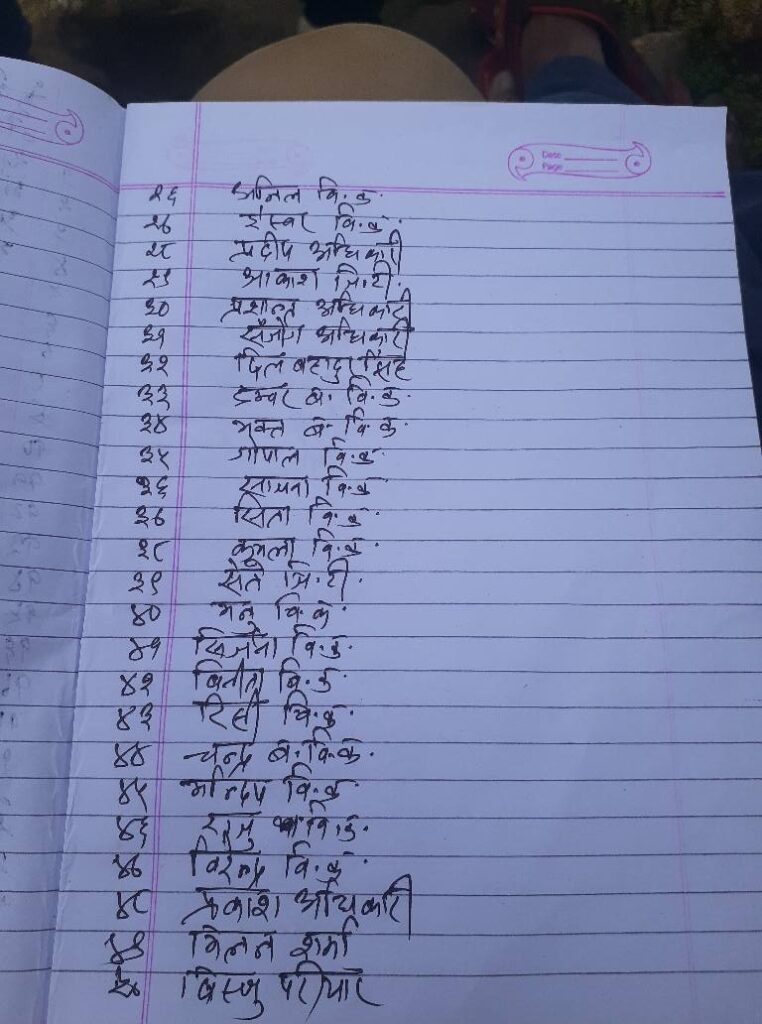 Date
Page
२६ अनिल वि.क.
२७ ईस्वर वि.क.
२८ प्रदीप अधिकारी
२९ आकाश वि.टी.
३० प्रशान्त अधिकारी
३१ संजोग अधिकारी
३२ दिल बहादुर सिंह
३३ डम्बर ब. वि.क.
३४ भक्त ब. वि.क.
३५ गोपाल वि.क.
३६ वि.क.
३७ सिता वि.क.
३८ कमला वि.क.
३९ वि.टी.
४० मनु वि.क.
४१ सिर्जना वि.क.
४२ बिनिता वि.क.
४३ वि.क.
४४ चन्द्र ब. वि.क.
४५ मन्दिप वि.क.
४६ राजु वि.क.
४७ विरेन्द्र वि.क.
४८ प्रकाश अधिकारी
४९ मिलन शर्मा
५० विस्णु परियार